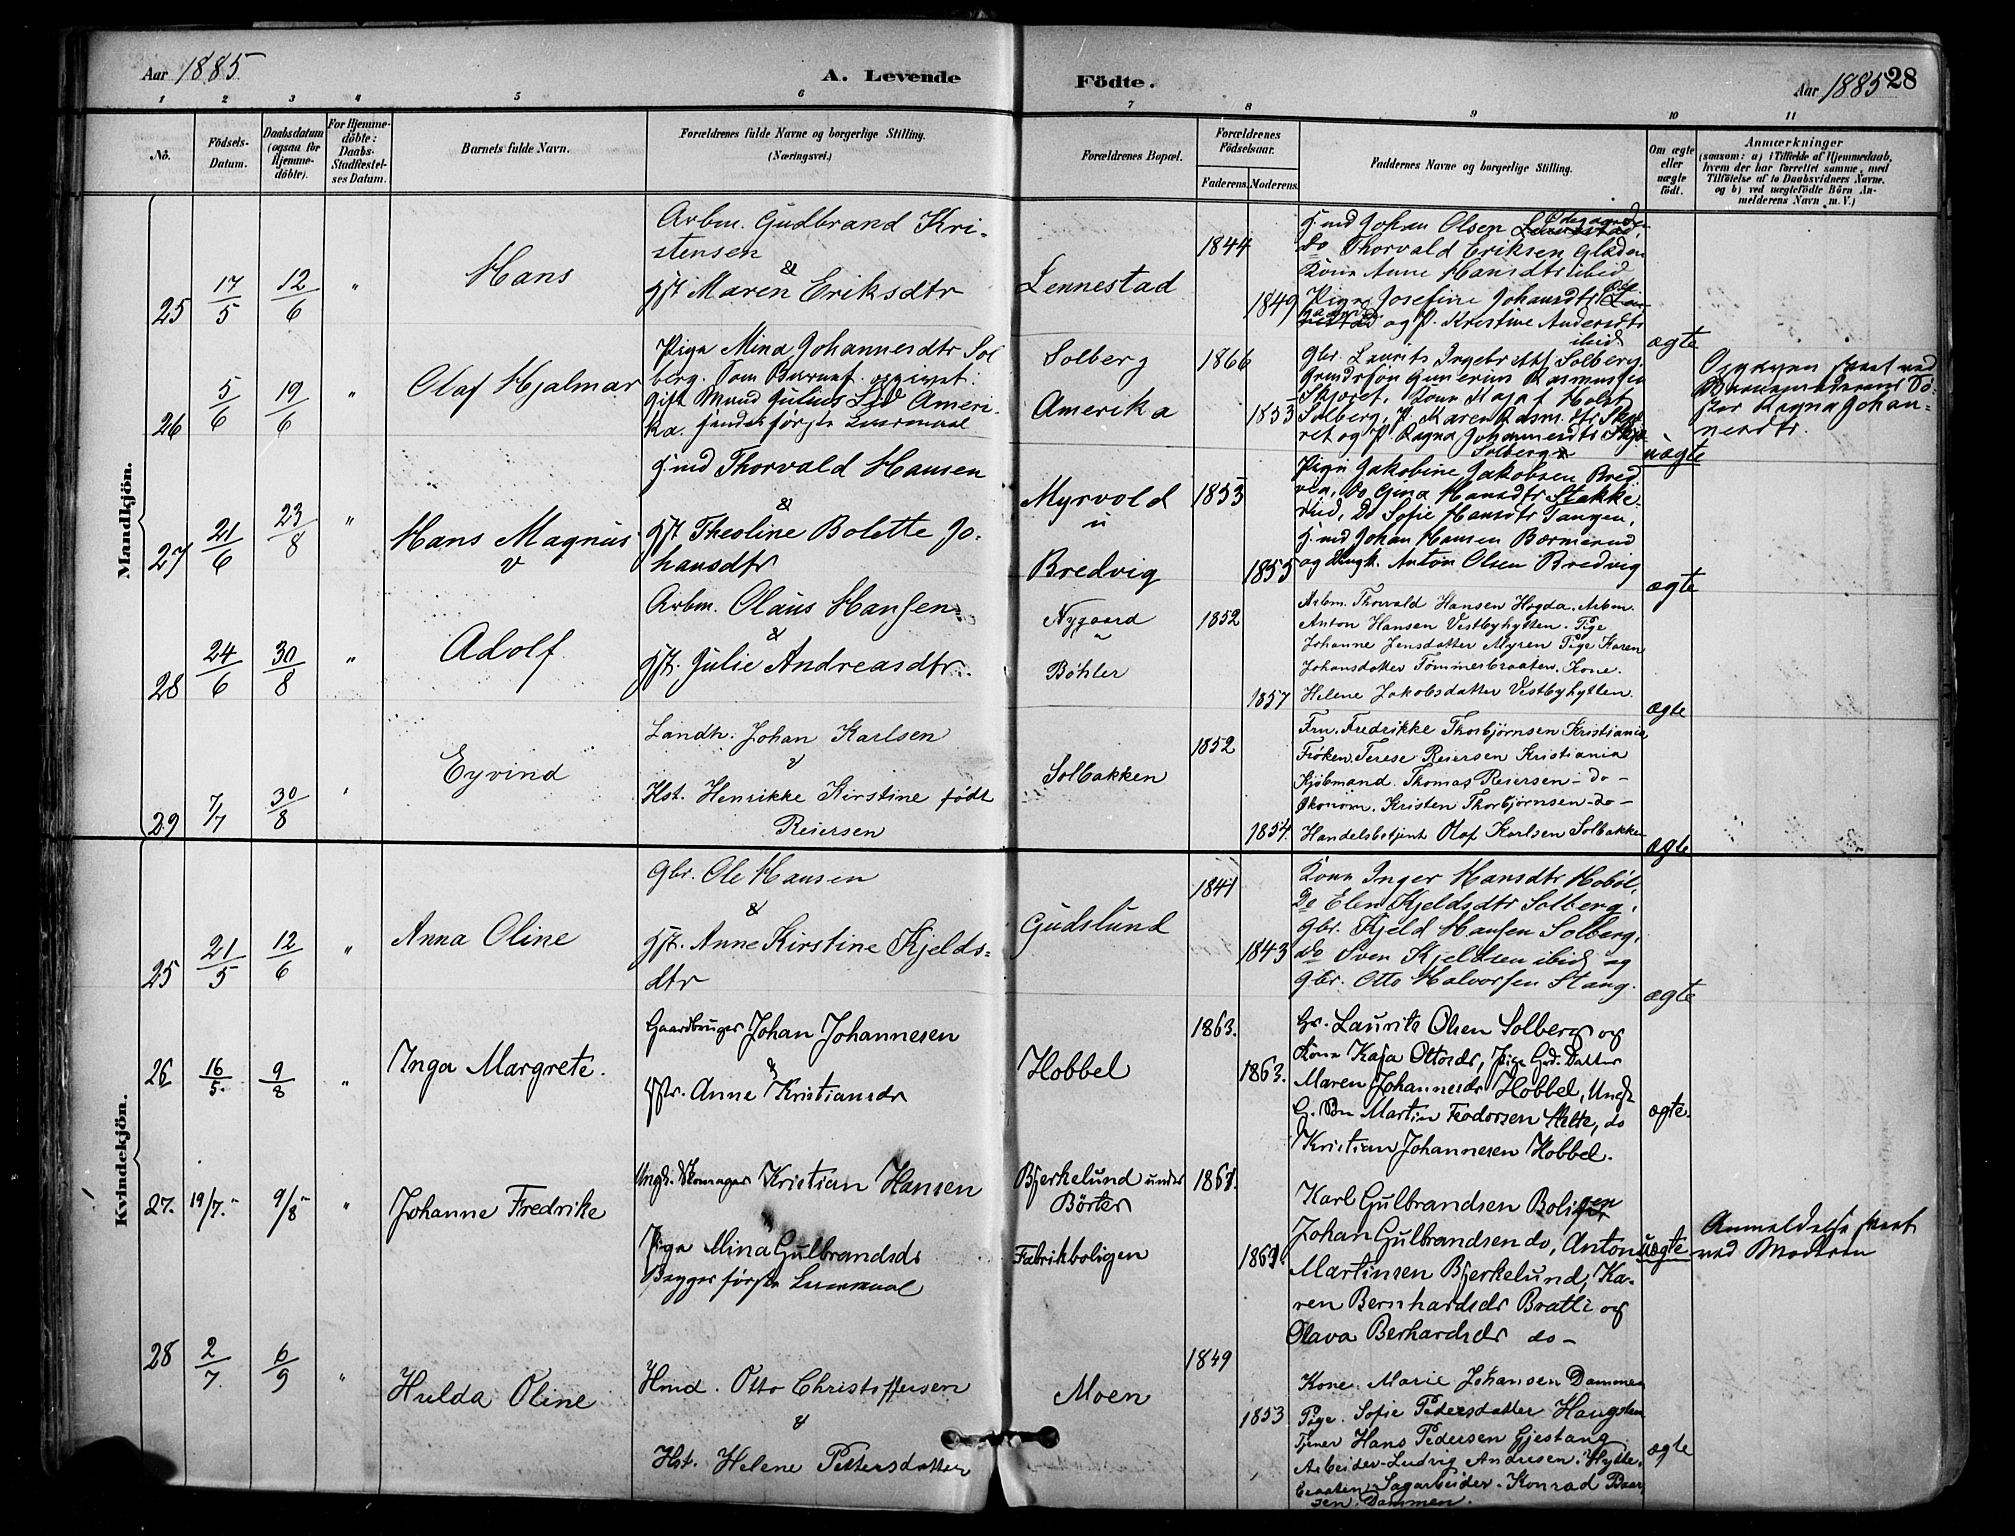 Aar 1885
A. Levende
Födte.
Aar 1885
28
1 2 3 4 5 6 7 8 9 10 11
No.
Födsels-Datum.
Daabsdatum (ogsaa for Hjemme-döbte).
For Hjemme-döbte: Daabs-Stadfæstel-ses Datum.
Barnets fulde Navn.
Forældrenes fulde Navne og borgerlige Stilling.
(Næringsvei.)
Forældrenes Bopæl.
Forældrenes Födselsaar.
Faderens. Moderens.
Faddernes Navne og borgerlige Stilling.
Om ægte eller uægte født.
Anmærkninger
(saasom: a) i Tilfælde af Hjemmedaab,
hvem der har forrettet samme, med
Tilføielse af to Daabsvidners Navne.
og b) ved uægtefödte Börn An-
melderens Navn m. V.)
Mandkjön.
25 17/5 12/6 " Hans
Arbm. Gudbrand Kri-
stensen
&
Gft Maren Eriksdtr
Lennestad
1844
1849
Gmd Johan Olsen
Do Thorvald Eriksen
Kone Anne Hansdtr ibid
Pige Josefine Johansdtr
og P. Kristine Andersdtr
ibid
ægte
26 5/6 19/6 " Olaf Hjalmar
Pige Mina Johannesdtr Sol
berg. Som Barnef. opgivet:
gift Mand Julius Ameri-
ka. første Leiermaal
Solberg
Amerika
1866
1853
Gbr. Laurits Solberg
Gunerius Rasmussen
Kone Kaja Holst
Solberg, P. Karen Rasm.dtr
ret og P. Ragna Johannesdtr
Solberg
uægte
Ragna Johan-
nesdtr.
27 21/6 23/8 " Hans Magnus
Gmd Thorvald Hansen
&
Gft Theoline Bolette Jo-
hansdtr
Myrvold
u
Bredvig
1853
1855
Pige Jakobine Jakobsen Bred
vig, Do Gina Hansdtr Stakke-
rud, Do Sofie Hansdtr Tangen,
Gmd Johan Hansen
og Ungk. Anton Olsen Bredvig
ægte
28 24/6 30/8 " Adolf
Arbm. Olaus Hansen
&
Gft. Julie Andreasdtr.
Nygaard
u
Böhler
1852
1857
Arbm. Thorvald Hansen Høgda, Arbm.
Anton Hansen Vestbyhytten. Pige
Johanne Jensdatter Myren Pige Karen
Johansdatter Tömmerbraaten. Kone
Helene Jakobsdatter Vestbyhytten.
ægte
29 7/7 30/8 Eyvind
Landh. Johan Karlsen
&
Hst. Henrikke Kirstine født
Reiersen
Solbakken
1852
1854.
Fru. Fredrikke Thorbjørnsen Kristiania,
Frøken. Terese Reiersen Kristiania
Kjöbmand Thomas Reiersen - do -
Økonom. Kristen Thorbjørnsen - do -
Handelsbetjent Olaf Karlsen Solbakken
ægte
Kvindekjön.
25 21/5 12/6 " Anna Oline
Gbr. Ole Hansen
&
Gft. Anne Kirstine Kjelds-
dtr
Gudslund
1841
1843
Kone Inger Hansdtr Hobøl,
Do Elen Kjeldsdtr Solberg,
Gbr. Kjeld Hansen Solberg,
do Sven Kjeldsen ibid og
Gbr. Otto Halvorsen Stang.
ægte
26 16/5. 9/8 " Inga Margrete.
Gaardbruger Johan Johannesen
&
Hstr. Anne Kristiansdr
Hobbel
1863.
1863.
Gr. Laurits Olsen Solberg og
Kone Kaja Ottosdr, Pige Grd. Datter
Maren Johannesdr Hobbel, Ungk
G. Br Martin Feodorsen, do
Kristian Johannesen Hobbel.
ægte.
27. 19/7. 9/8 " Johanne Fredrike
Ungk. Skomager Kristian Hansen
Pige Mina Gulbrandsdr
Begges første Leiermaal
Bjerkelund under
Börter
Fabrikboligen
Karl Gulbrandsen Boligen
Johan Gulbrandsen do, Anton
Martinsen Bjerkelund, Ka-
ren Bernhardsdr Bratli og
Olava Berhardsdr do -
uægte
Anmeldelse skeet
ved Moderen
28 2/7. 6/9 " Hulda Oline
Hmd. Otto Christoffersen
&
Hst. Helene Pettersdatter
Moen
1849
1853
Kone. Marie Johansen Dammen
Pige. Sofie Pedersdatter Haugsten
Tjener Hans Pedersen Gjestang
Arbeider. Ludvig Andresen. Hytte-
braaten. Sagarbeider. Konrad
sen. Dammen.
ægte